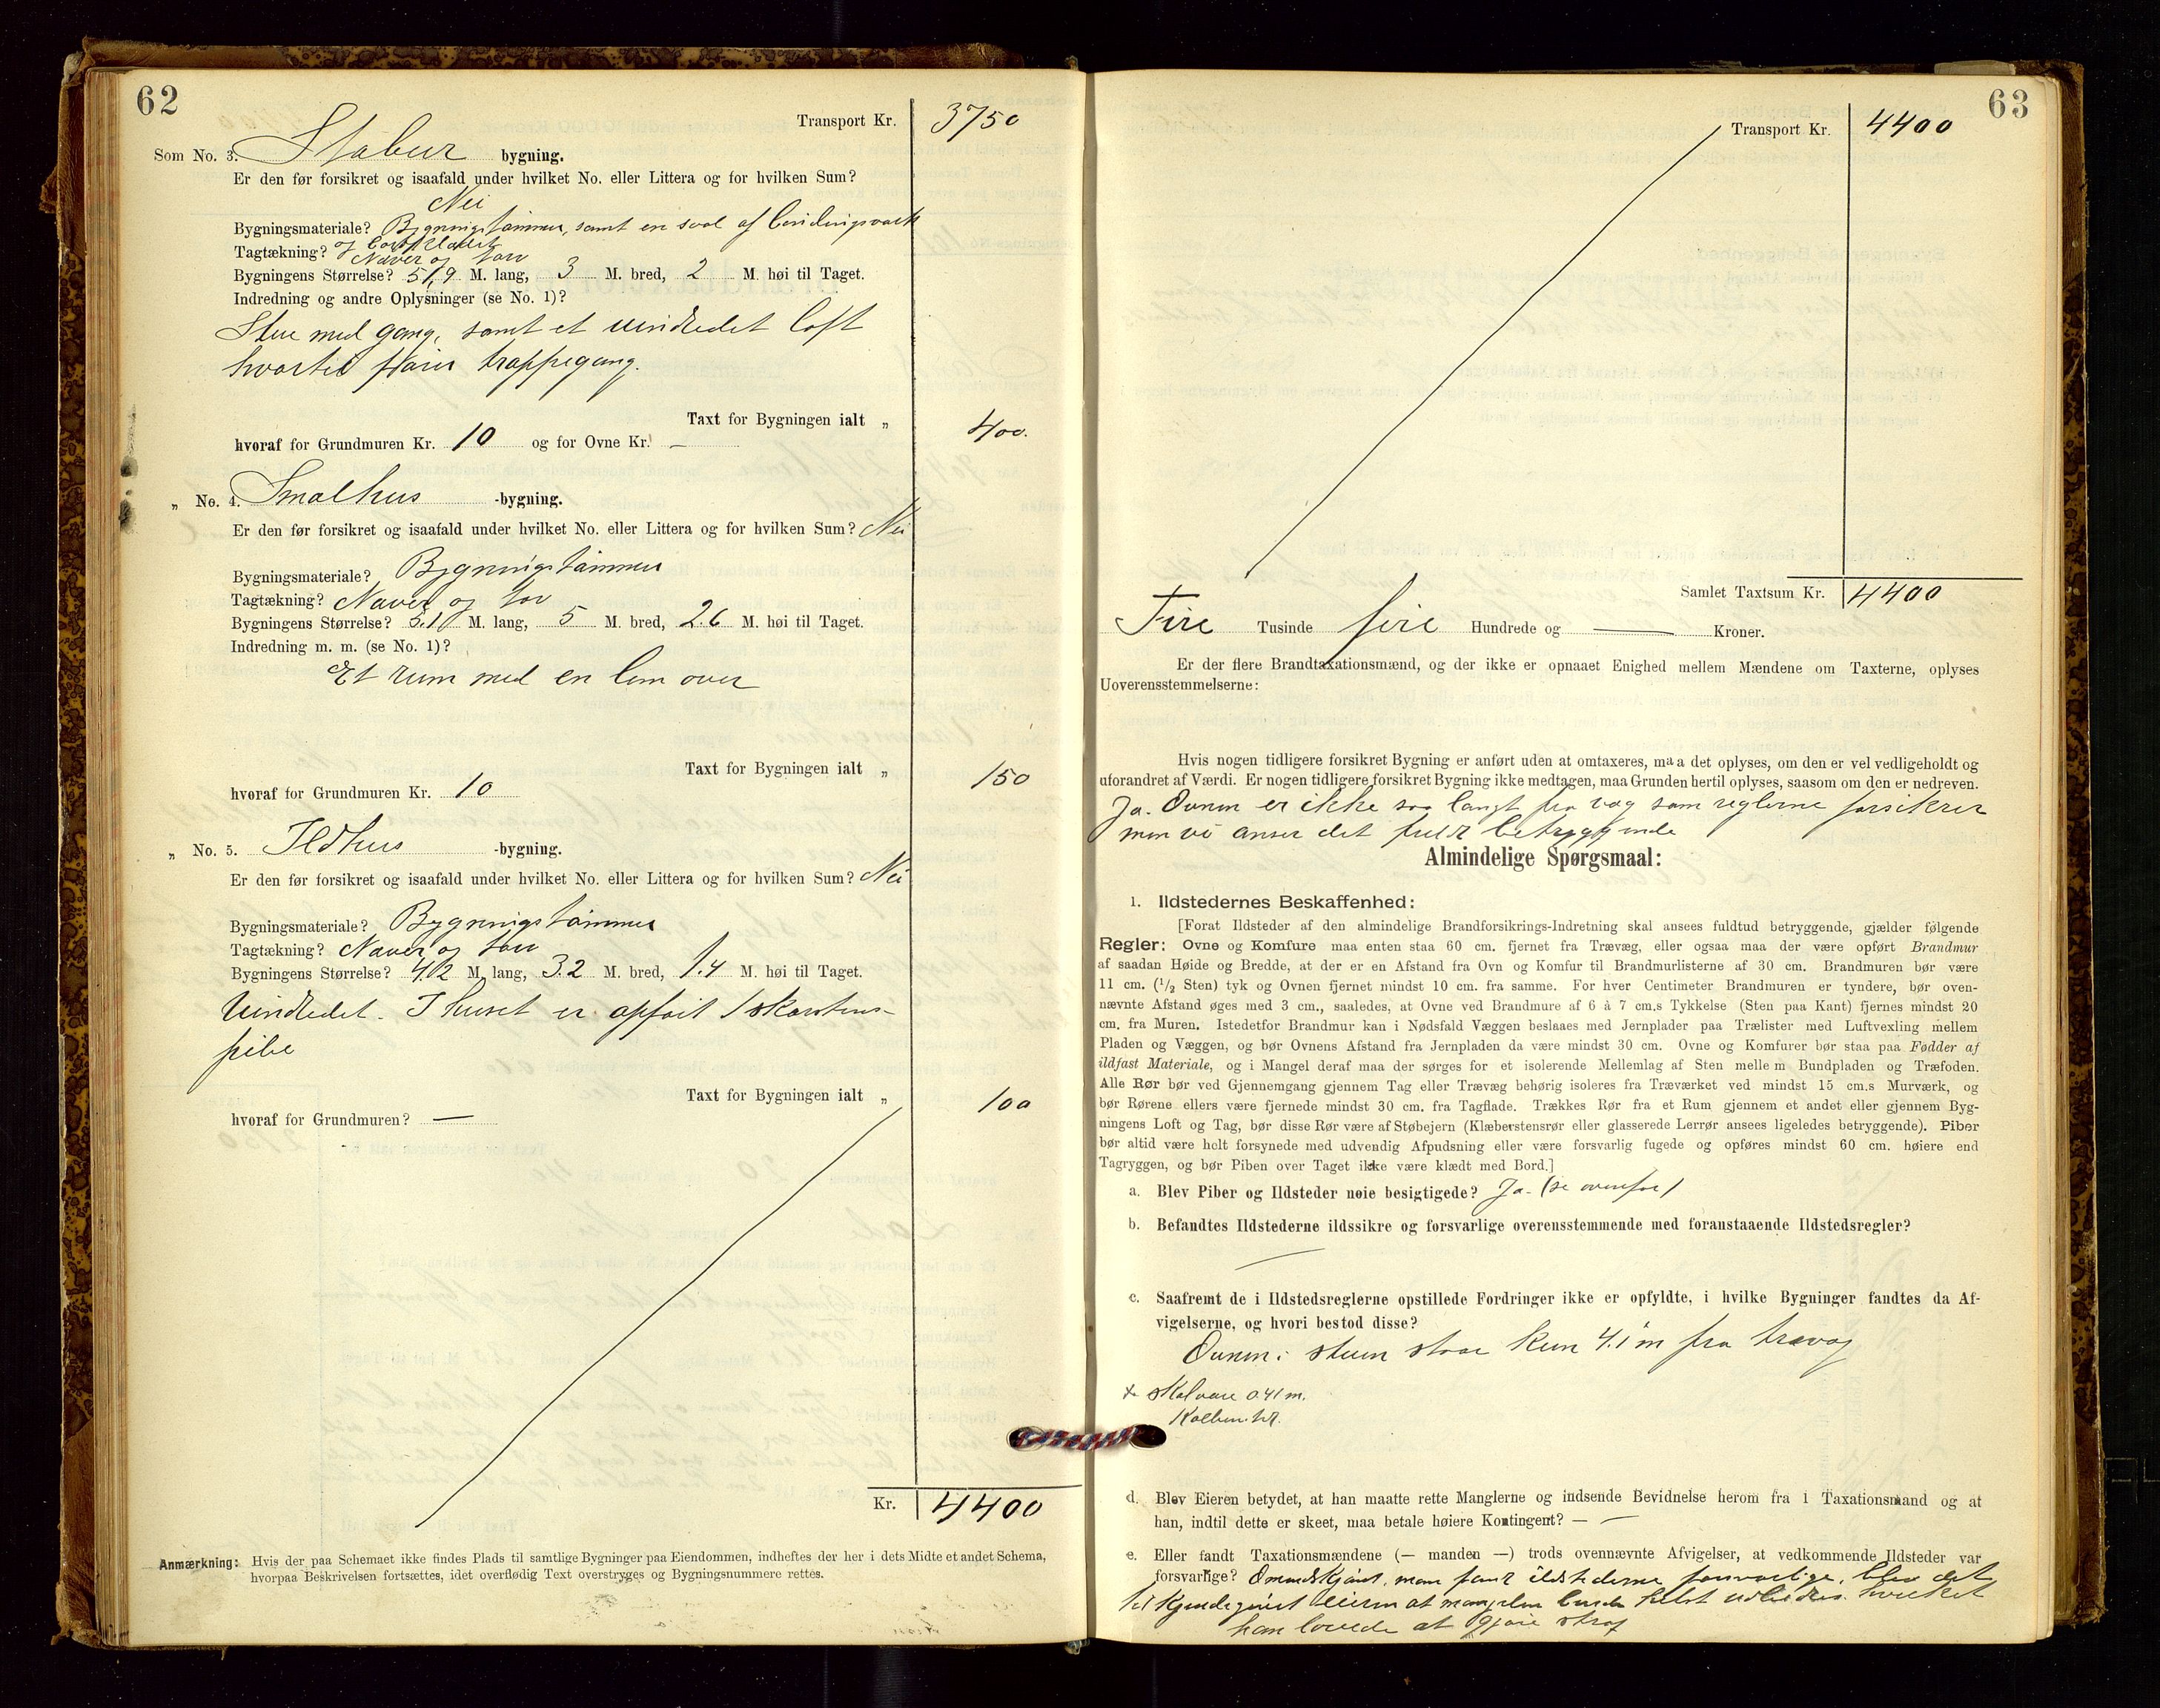 62
Transport Kr. 3750
Som No. 3. Stabur bygning.
Er den før forsikret og isaafald under hvilket No. eller Littera og for hvilken Sum?
Nei
Bygningsmateriale? Bygningstømmer, samt en sval af bindingsverk
og bordklædt
Tagtækning? Næver og torv
Bygningens Størrelse? 5,9 M. lang, 3 M. bred, 2 M. høi til Taget.
Indredning og andre Oplysninger (se No. 1)?
Stue med gang, samt et uindredet loft
hvortil fører trappegang.
Taxt for Bygningen ialt „ 400.
hvoraf for Grundmuren Kr. 10 og for Ovne Kr. —
„ No. 4. Smalhus -bygning.
Er den før forsikret og isaafald under hvilket No. eller Littera og for hvilken Sum? Nei
Bygningsmateriale? Bygningstømmer
Tagtækning? Næver og torv
Bygningens Størrelse? 5.10 M. lang, 5 M. bred, 2.6 M. høi til Taget.
Indredning m. m. (se No. 1)?
Et rum med en lem over
Taxt for Bygningen ialt „ 150
hvoraf for Grundmuren Kr. 10
„ No. 5. Ildhus -bygning.
Er den før forsikret og isaafald under hvilket No. eller Littera og for hvilken Sum? Nei
Bygningsmateriale? Bygningstømmer
Tagtækning? Næver og torv
Bygningens Størrelse? 4.2 M. lang, 3.2 M. bred, 1.4 M. høi til Taget.
Uindredet. I huset er opført 1 skorstens-
pibe
Taxt for Bygningen ialt „ 100
hvoraf for Grundmuren? —
Kr. 4400
Anmærkning: Hvis der paa Schemaet ikke findes Plads til samtlige Bygninger paa Eiendommen, indheftes der her i dets Midte et andet Schema,
hvorpaa Beskrivelsen fortsættes, idet overflødig Text overstryges og Bygningsnummere rettes.
63
Transport Kr. 4400
Samlet Taxtsum Kr. 4400
Fire Tusinde fire Hundrede og — Kroner.
Er der flere Brandtaxationsmænd, og der ikke er opnaaet Enighed mellem Mændene om Taxterne, oplyses
Uoverensstemmelserne:
Hvis nogen tidligere forsikret Bygning er anført uden at omtaxeres, maa det oplyses, om den er vel vedligeholdt og
uforandret af Værdi. Er nogen tidligere forsikret Bygning ikke medtagen, maa Grunden hertil oplyses, saasom om den er nedreven.
Ja. Ovnen er ikke saa langt fra væg som reglerne forsikrer
men vi anser det fuldt betryggende
Almindelige Spørgsmaal:
1. Ildstedernes Beskaffenhed:
[Forat Ildsteder af den almindelige Brandforsikrings-Indretning skal ansees fuldtud betryggende, gjælder følgende
Regler: Ovne og Komfure maa enten staa 60 cm. fjernet fra Trævæg, eller ogsaa maa der være opført Brandmur
af saadan Høide og Bredde, at der er en Afstand fra Ovn og Komfur til Brandmurlisterne af 30 cm. Brandmuren bør være
11 cm. (1/2 Sten) tyk og Ovnen fjernet mindst 10 cm. fra samme. For hver Centimeter Brandmuren er tyndere, bør oven-
nævnte Afstand øges med 3 cm., saaledes, at Ovne ved Brandmure af 6 à 7 cm.s Tykkelse (Sten paa Kant) fjernes mindst 20
cm. fra Muren. Istedetfor Brandmur kan i Nødsfald Væggen beslaaes med Jernplader paa Trælister med Luftvexling mellem
Pladen og Væggen, og bør Ovnens Afstand fra Jernpladen da være mindst 30 cm. Ovne og Komfurer bør staa paa Fødder af
ildfast Materiale, og i Mangel deraf maa der sørges for et isolerende Mellemlag af Sten mellem Bundpladen og Træfoden.
Alle Rør bør ved Gjennemgang gjennem Tag eller Trævæg behørig isoleres fra Træværket ved mindst 15 cm.s Murværk, og
bør Rørene ellers være fjernede mindst 30 cm. fra Tagflade. Trækkes Rør fra et Rum gjennem et andet eller gjennem Byg-
ningens Loft og Tag, bør disse Rør være af Støbejern (Klæberstensrør eller glasserede Lerrør ansees ligeledes betryggende). Piber
bør altid være helt forsynede med udvendig Afpudsning eller være forsvarlig fugede og opføres mindst 60 cm. høiere end
Tagryggen, og bør Piben over Taget ikke være klædt med Bord.]
a. Blev Piber og Ildsteder nøie besigtigede? Ja. (se ovenfor)
b. Befandtes Ildstederne ildssikre og forsvarlige overensstemmende med foranstaaende Ildstedsregler?
—
c. Saafremt de i Ildstedsreglerne opstillede Fordringer ikke er opfyldte, i hvilke Bygninger fandtes da Af-
vigelserne, og hvori bestod disse?
Ovnen i stuen staar kun 4.1 m fra trævæg
x skal være 0.41 m.
d. Blev Eieren betydet, at han maatte rette Manglerne og indsende Bevidnelse herom fra 1 Taxationsmand og at
han, indtil dette er skeet, maa betale høiere Kontingent? — —
e. Eller fandt Taxationsmændene (— manden —) trods ovennævnte Afvigelser, at vedkommende Ildsteder var
forsvarlige? Omendskjønt man fandt ildstederne forsvarlige, blev det
tilkjendegivet eieren at manglen burde helst udbedres hvilket
han lovede at gjøre straf